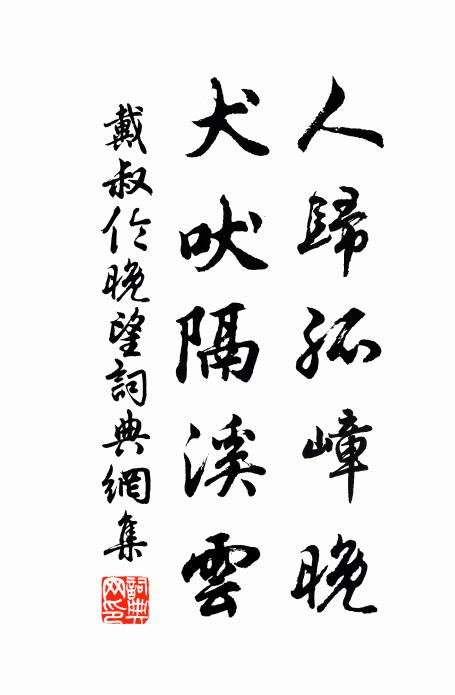 人歸孤嶂晚
犬吠隔溪雲
戴叔伦晚望詞典網集
詞典網印